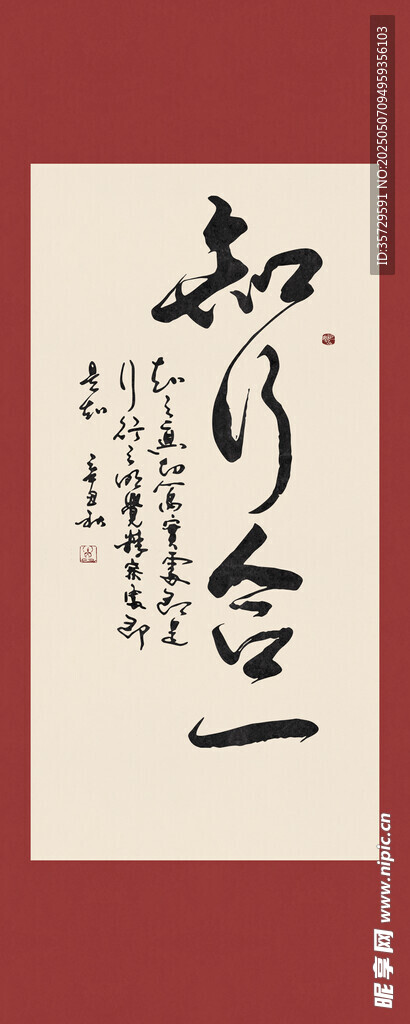 知行合一
知之真切篤實處即是
行行之明覺精察處即
是知 辛丑秋
ID:35729591 NO:20250507094959356103
昵享网 www.nipic.cn